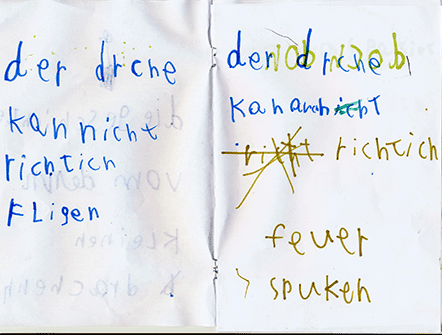 der drche
kannicht
richtich
FLigen
der drche
kanarchnicht
richtich
feuer
spuken